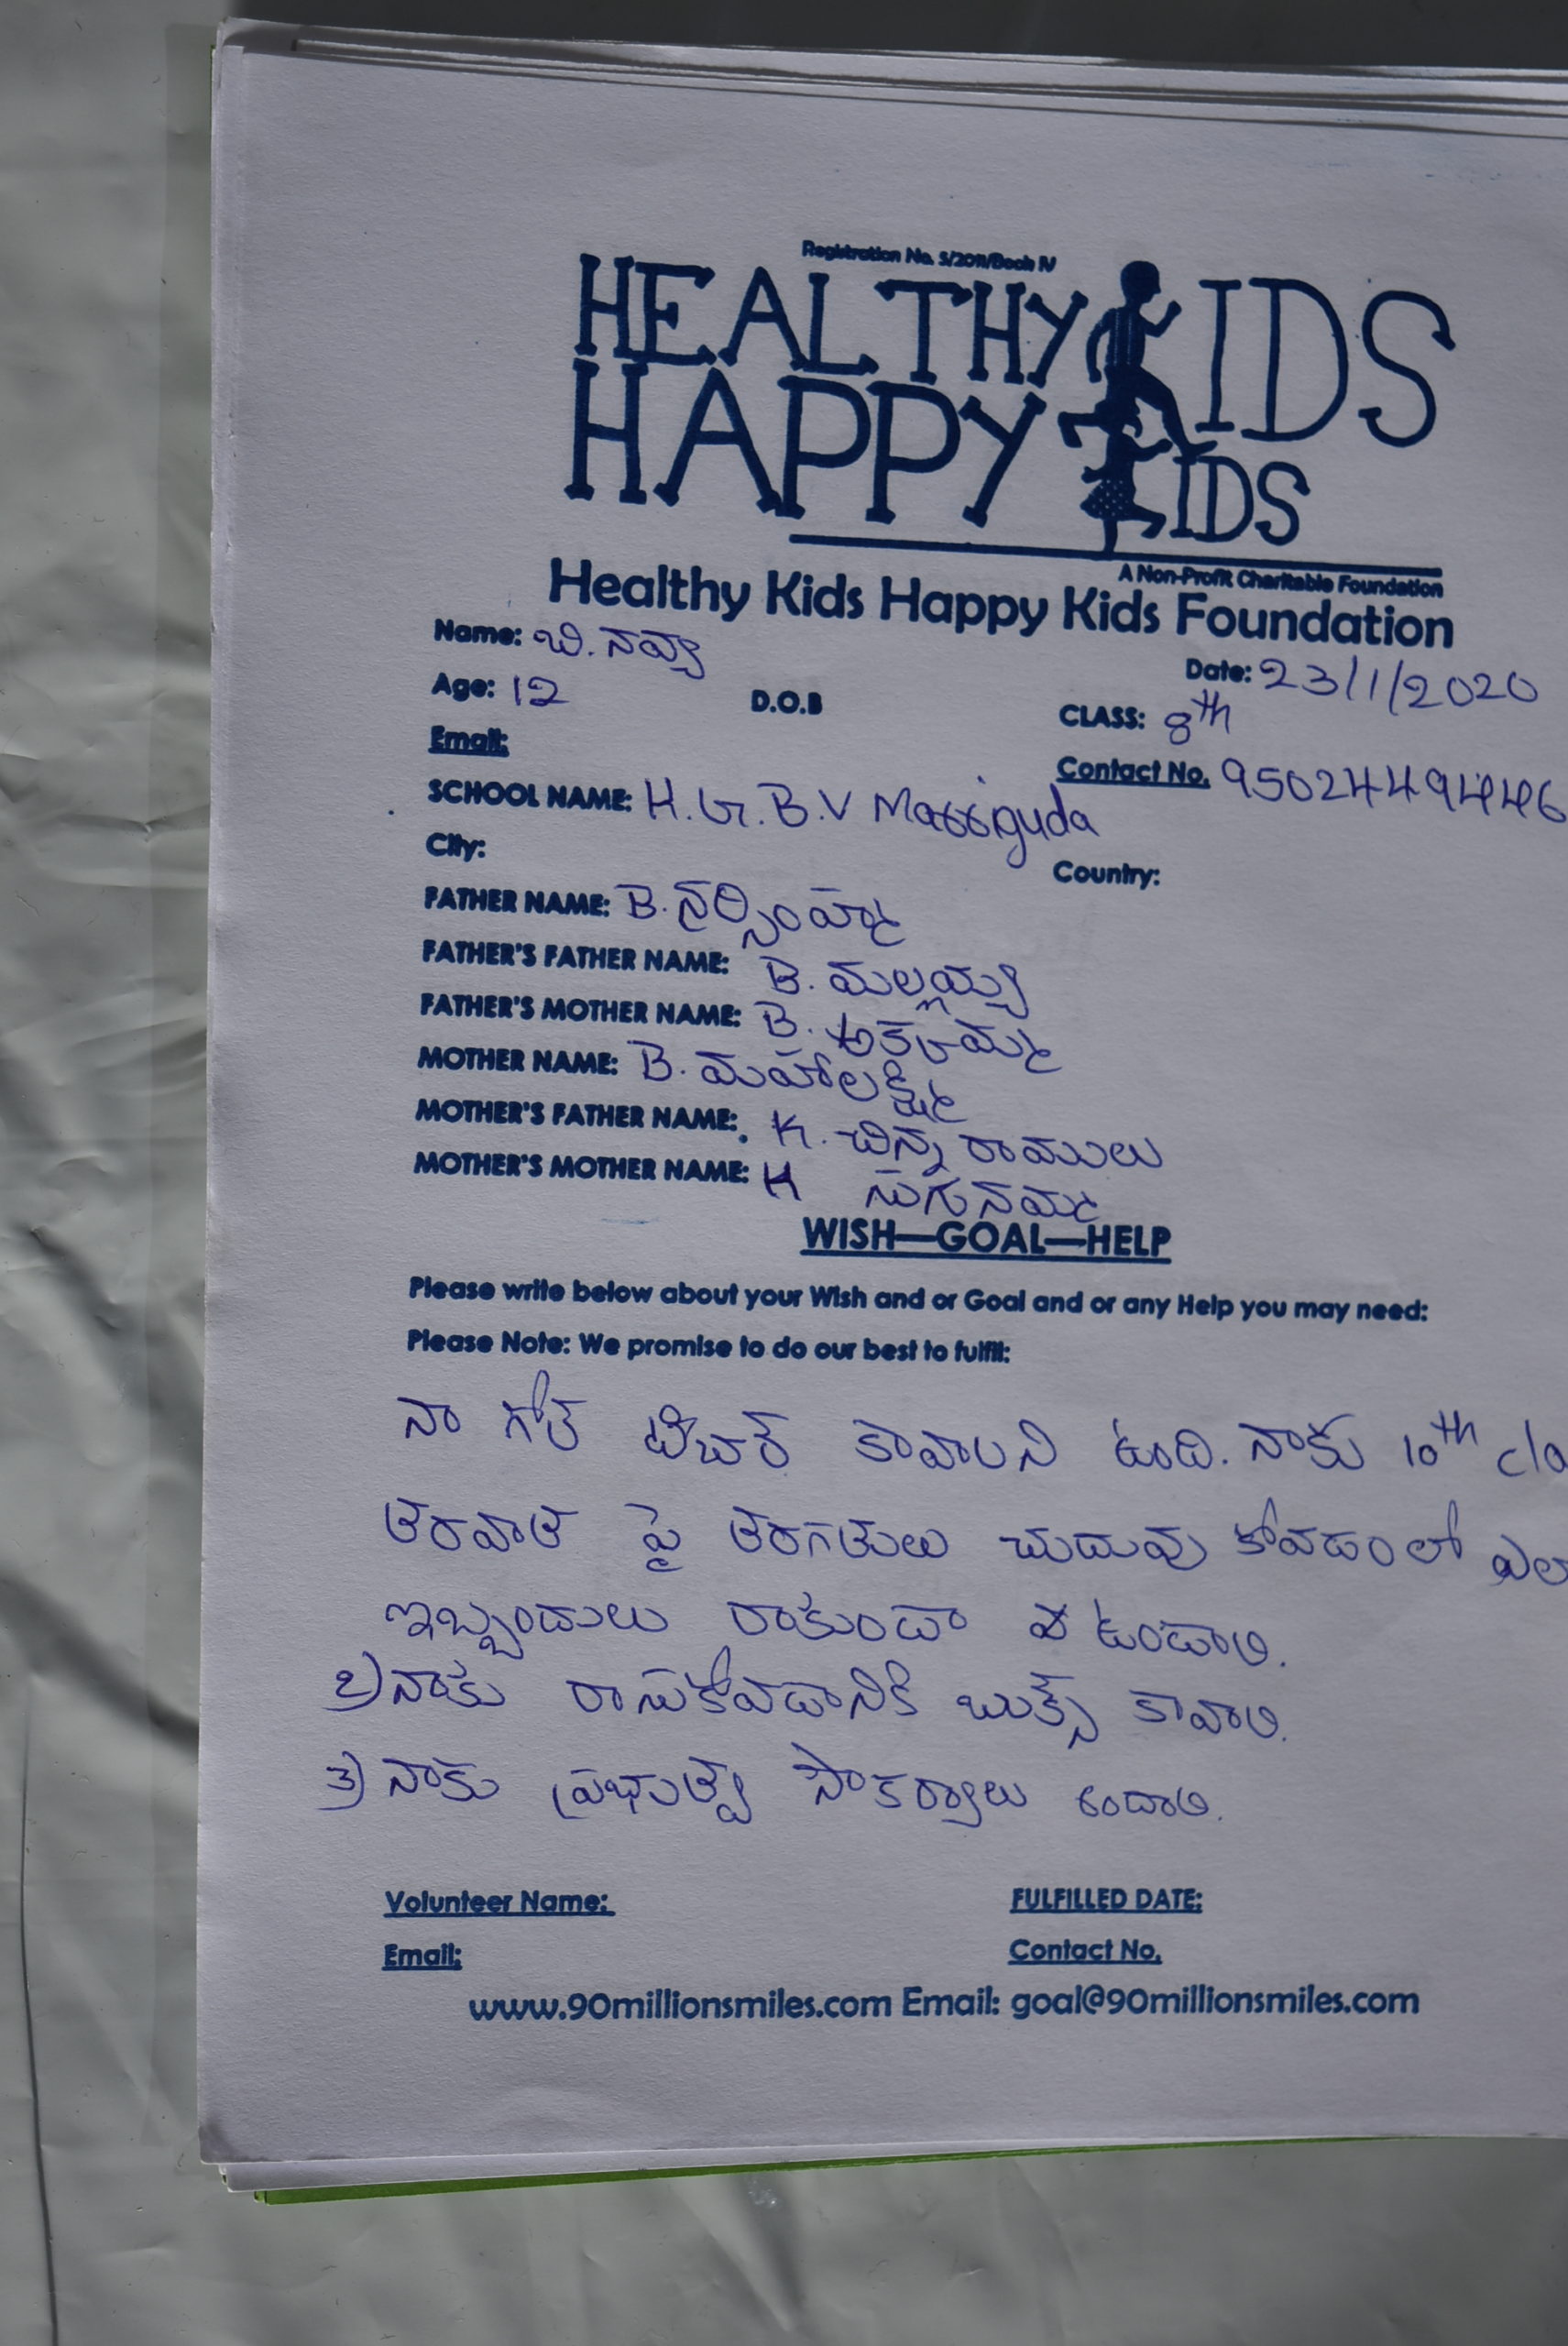 Registration No. 5/2011/Book IV
HEALTHY KIDS
HAPPY KIDS
A Non-Profit Charitable Foundation
Healthy Kids Happy Kids Foundation
Name: బి. నవ్య
Date: 23/1/2020
Age: 12 D.O.B CLASS: 8th
Email: Contact No. 9502449446
SCHOOL NAME: K.G.B.V Marriguda
City: Country:
FATHER NAME: B. నర్సింహ్మ
FATHER'S FATHER NAME: B. మల్లయ్య
FATHER'S MOTHER NAME: B. అకమ్మ
MOTHER NAME: B. మహాలక్ష్మి
MOTHER'S FATHER NAME: K. చిన్న రాములు
MOTHER'S MOTHER NAME: K సుగునమ్మ
WISH—GOAL—HELP
Please write below about your Wish and or Goal and or any Help you may need:
Please Note: We promise to do our best to fulfil:
నా గోల్ టిచర్ కావాలని ఉంది. నాకు 10th cla
తరవాత పై తరగతులు చుదువు కోవడంలో ఎలా
ఇబ్బందులు రాకుండా ఉండాలి.
2) నాకు రాసుకోవడానికి బుక్స్ కావాలి.
3) నాకు ప్రభుత్వ సౌకర్యాలు ఉండాలి.
Volunteer Name: FULFILLED DATE:
Email: Contact No.
www.90millionsmiles.com Email: goal@90millionsmiles.com